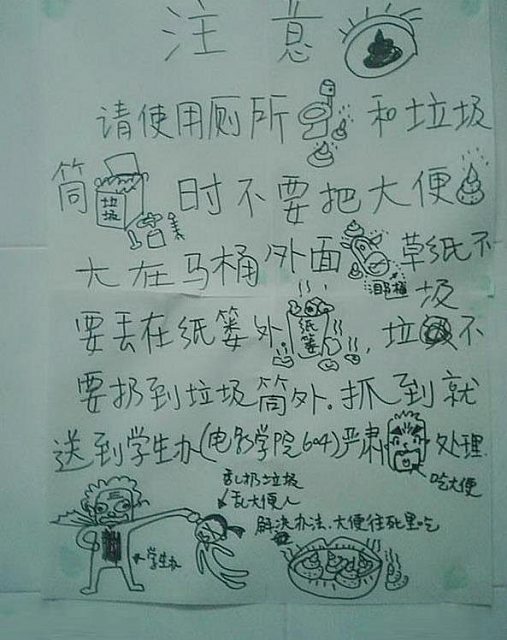 注意
请使用厕所和垃圾
筒垃圾时不要把大便
大在马桶外面草纸不
马桶
要丢在纸篓外.垃圾不
纸篓
要扔到垃圾筒外.抓到就
送到学生办(电影学院604)严肃处理.
吃大便
乱扔垃圾
乱大便人
解决办法、大便往死里吃
学生办